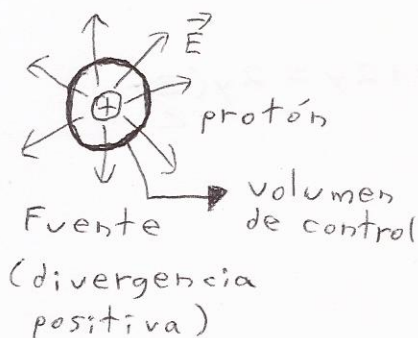 E
+
protón
volumen
de control
Fuente
(divergencia
positiva)